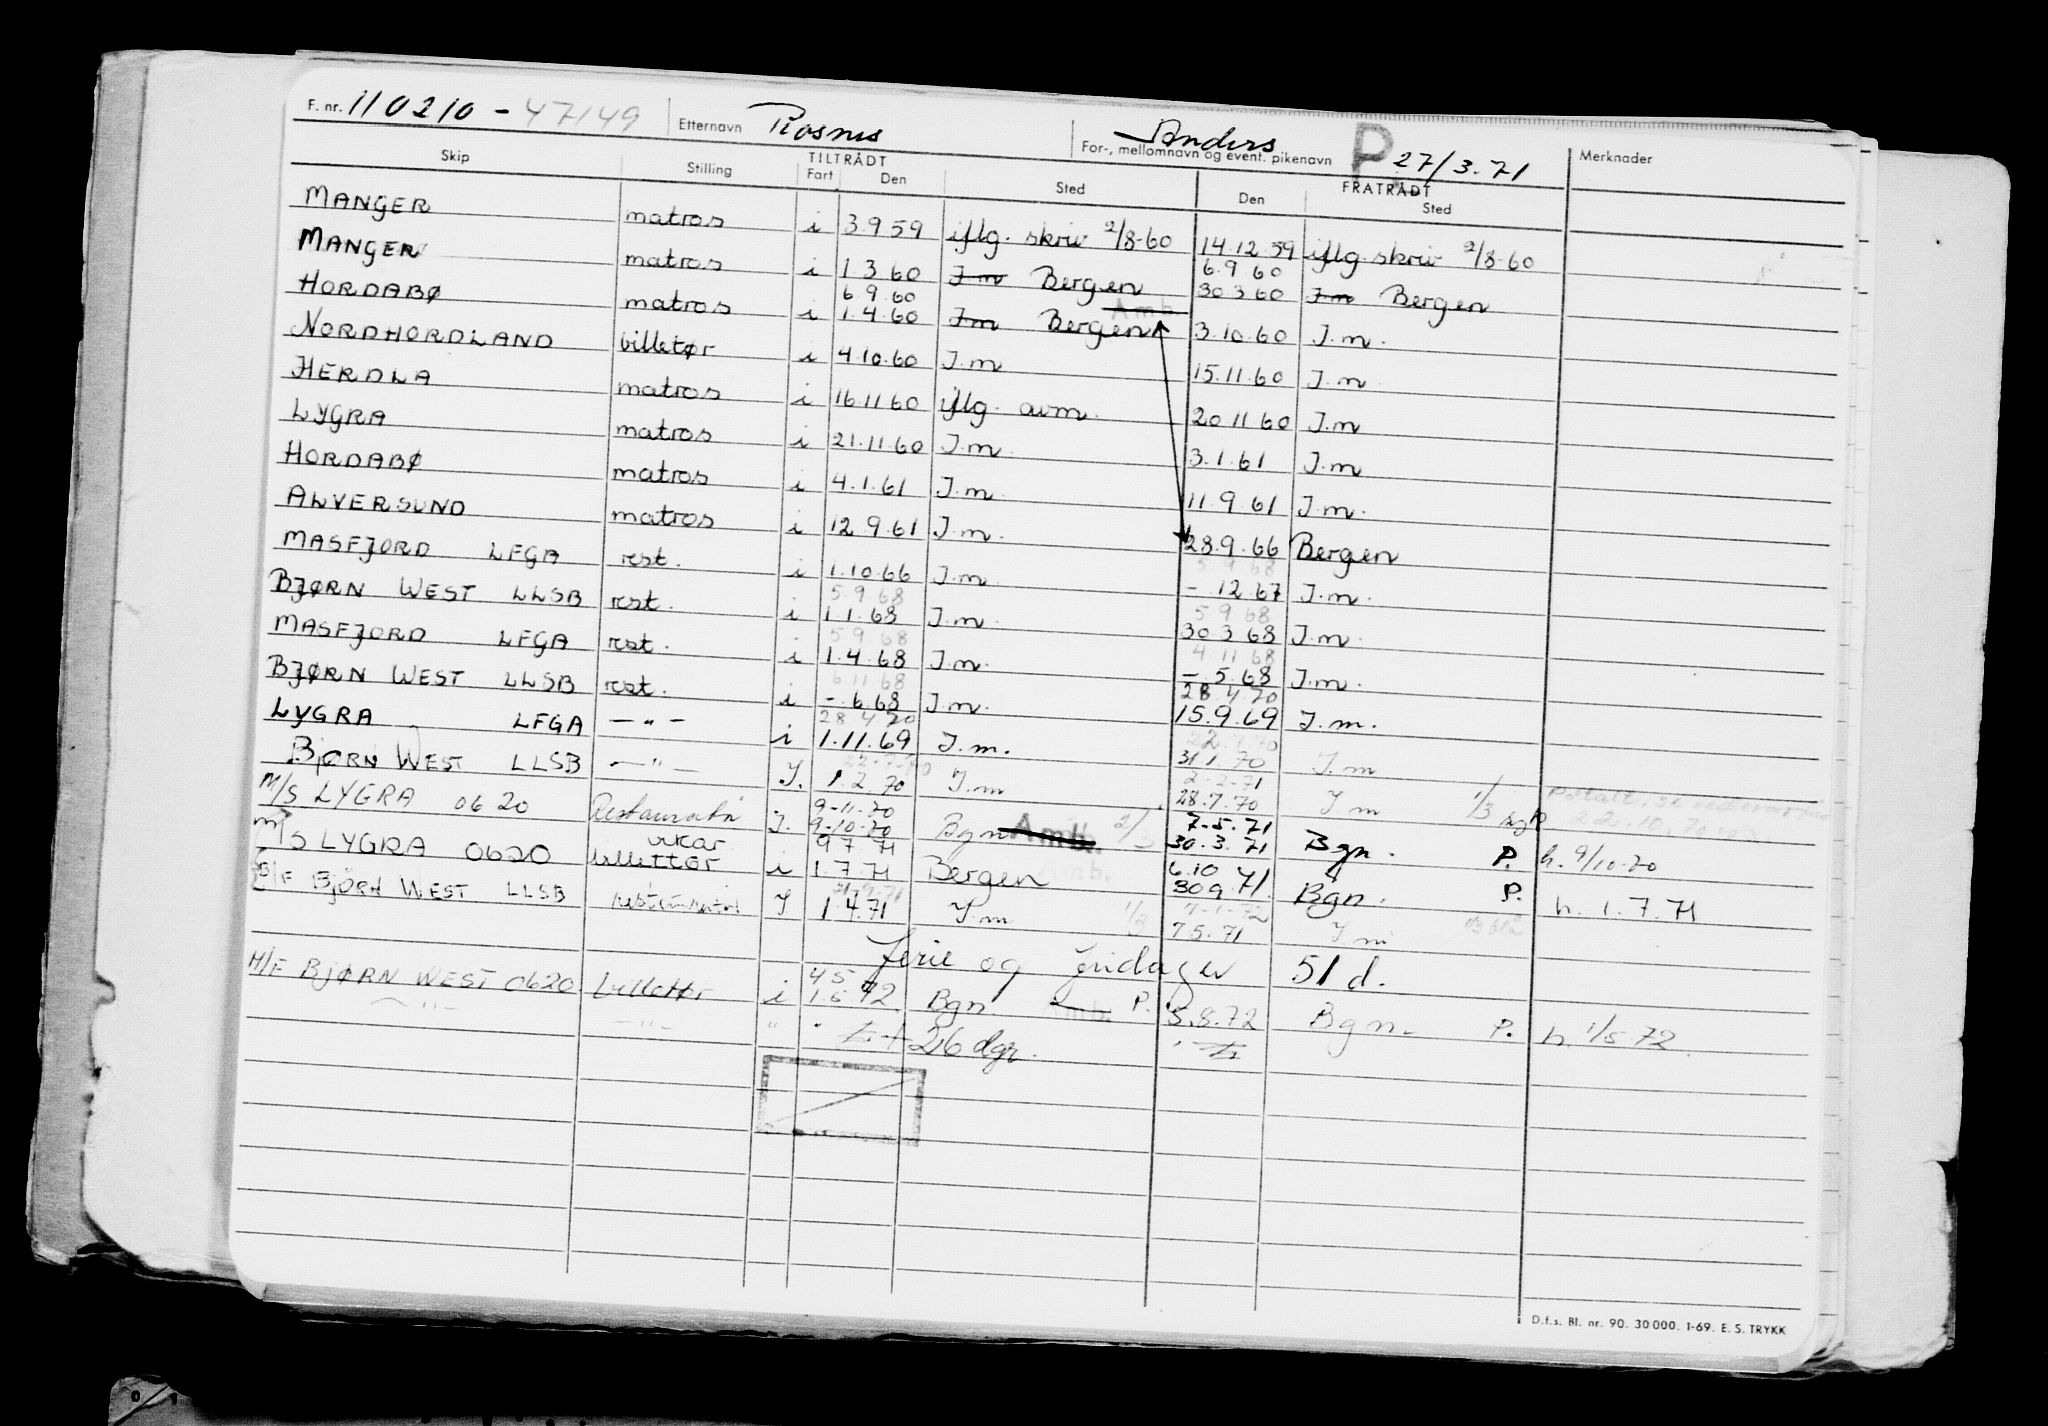 F. nr. 110210 - 47149 Etternavn Rosnes Anders For-, mellomnavn og event. pikenavn P. 27/3.71 Merknader
Skip Stilling TILTRÅDT Fart Den Sted FRATRÅDT Den Sted
MANGER matros i 3.9.59 iflg. skriv 2/8-60 14.12.59 iflg. skriv 2/8-60
6.9.60
MANGER matros i 1.3.60 I.m Bergen 30.3.60 I.m Bergen
6.9.60 Amb.
HORDABØ matros i 1.4.60 I.m Bergen 3.10.60 I.m.
NORDHORDLAND billetør i 4.10.60 I.m 15.11.60 I.m
HERDLA matros i 16.11.60 iflg. avm. 20.11.60 I.m
LYGRA matros i 21.11.60 I.m. 3.1.61 I.m
HORDABØ matros i 4.1.61 I.m. 11.9.61 I.m.
ALVERSUND matros i 12.9.61 I.m. 28.9.66 Bergen
5.9.68
MASFJORD LFGA rest. i 1.10.66 I.m. -.12.67 I.m.
5.9.68 5.9.68
BJØRN WEST LLSB rest. i 1.1.68 I.m. 30.3.68 I.m.
5.9.68 4.11.68
MASFJORD LFGA rest. i 1.4.68 I.m. -.5.68 I.m.
6.11.68 28.4.70
BJØRN WEST LLSB rest. i -.6.68 I.m. 15.9.69 I.m.
28.4.70 22.7.70
LYGRA LFGA -"- i 1.11.69 I.m. 31.1.70 I.m
22.7.70 2-2-71
BJØRN WEST LLSB -"- I. 1.2.70 I.m 28.7.70 I m 1/3
9-11-70 7-5.71 22.10.70
M/S LYGRA 0620 I. 9-10-70 Bgn Amb. 2/3 30.3.71 Bgn. P. h. 9/10-70
vikar 9 7 71 6.10 71
M/S LYGRA 0620 billettør i 1.7.71 Bergen Amb. 30 9 71. Bgn. P. h. 1.7.71
7-1-72
M/F BJØRN WEST LLSB I 1.4.71 I.m 1/3 7 5.71 I m
Ferie og fridager 51 d.
4 5
M/F BJØRN WEST 0620 billettør i 1.5 72 Bgn. Amb. P. 5.8.72 Bgn. P. h. 1/5.72.
-"- -"- " 26 dgr.
D.f.s. Bl. nr. 90. 30 000. 1-69. E. S. TRYKK